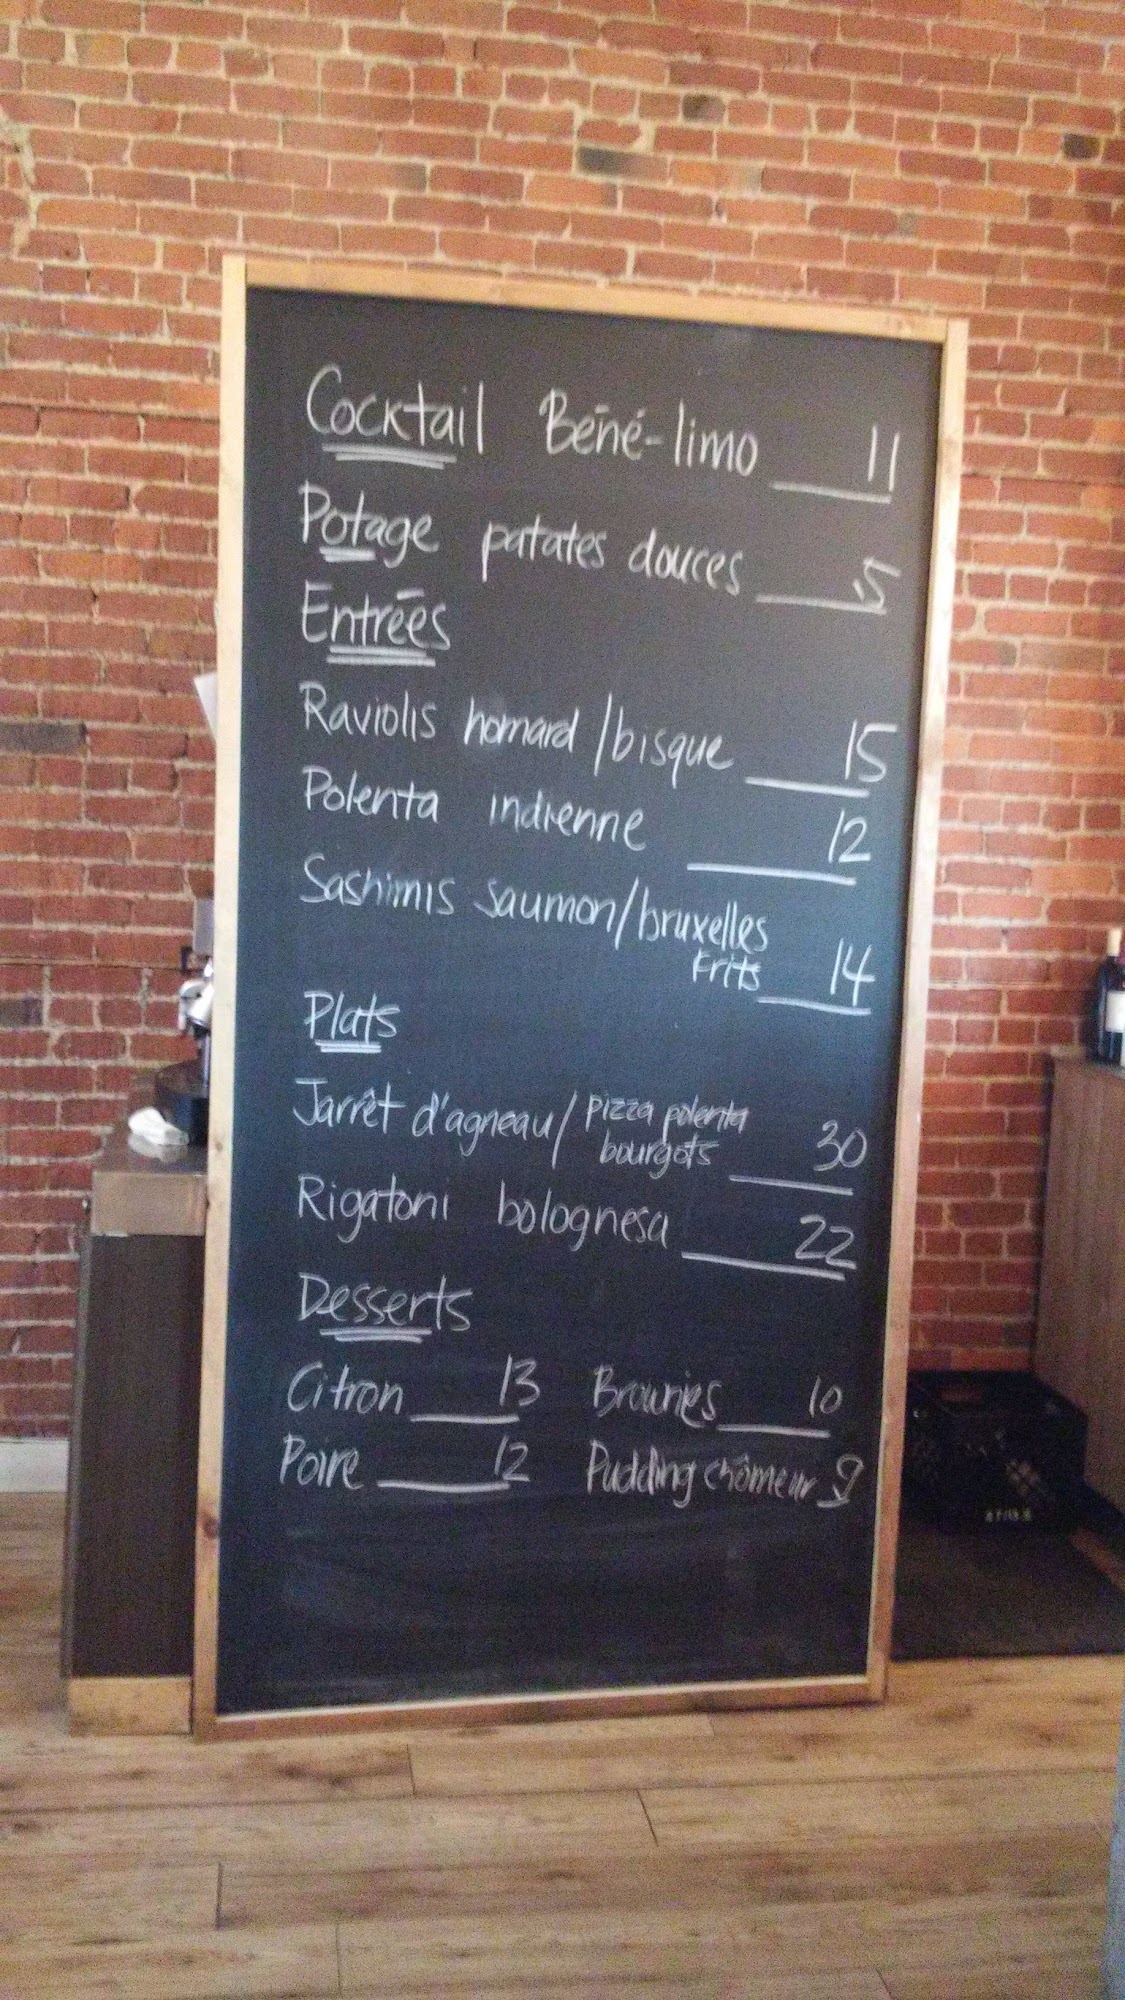 Cocktail Béné-limo 11
Potage patates douces 5
Entrées
Raviolis homard/bisque 15
Polenta indienne 12
Sashimis saumon/bruxelles
frits 14
Plats
Jarrêt d'agneau/pizza polenta
bourgots 30
Rigatoni bolognesa 22
Desserts
Citron 13 Brownies 10
Poire 12 Pudding chômeur